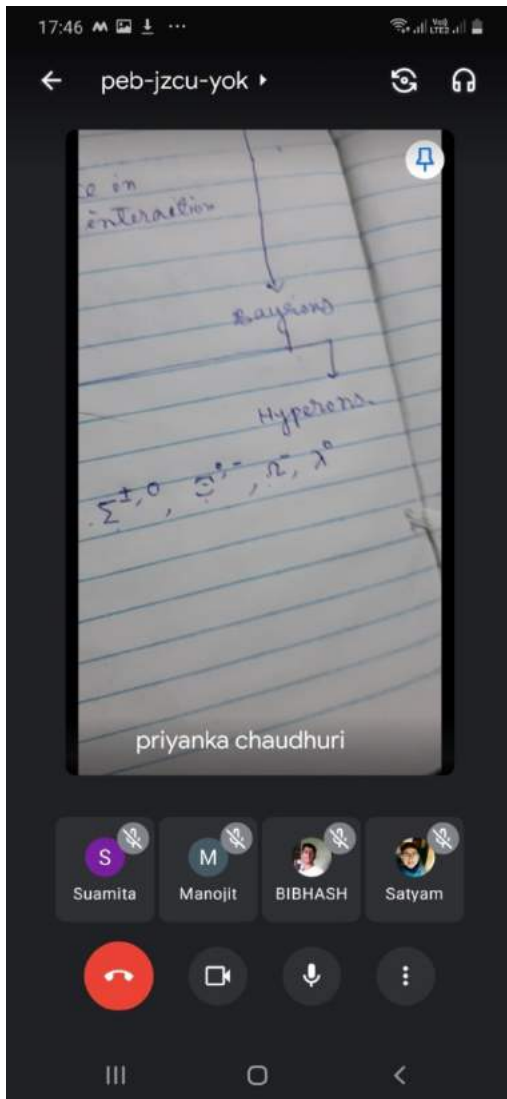 17:46
peb-jzcu-yok
ce in
interaction
Baryons
Hyperons.
Σ±,0, Ξ0,-, Ω-, λ0
priyanka chaudhuri
S
M
Suamita
Manojit
BIBHASH
Satyam